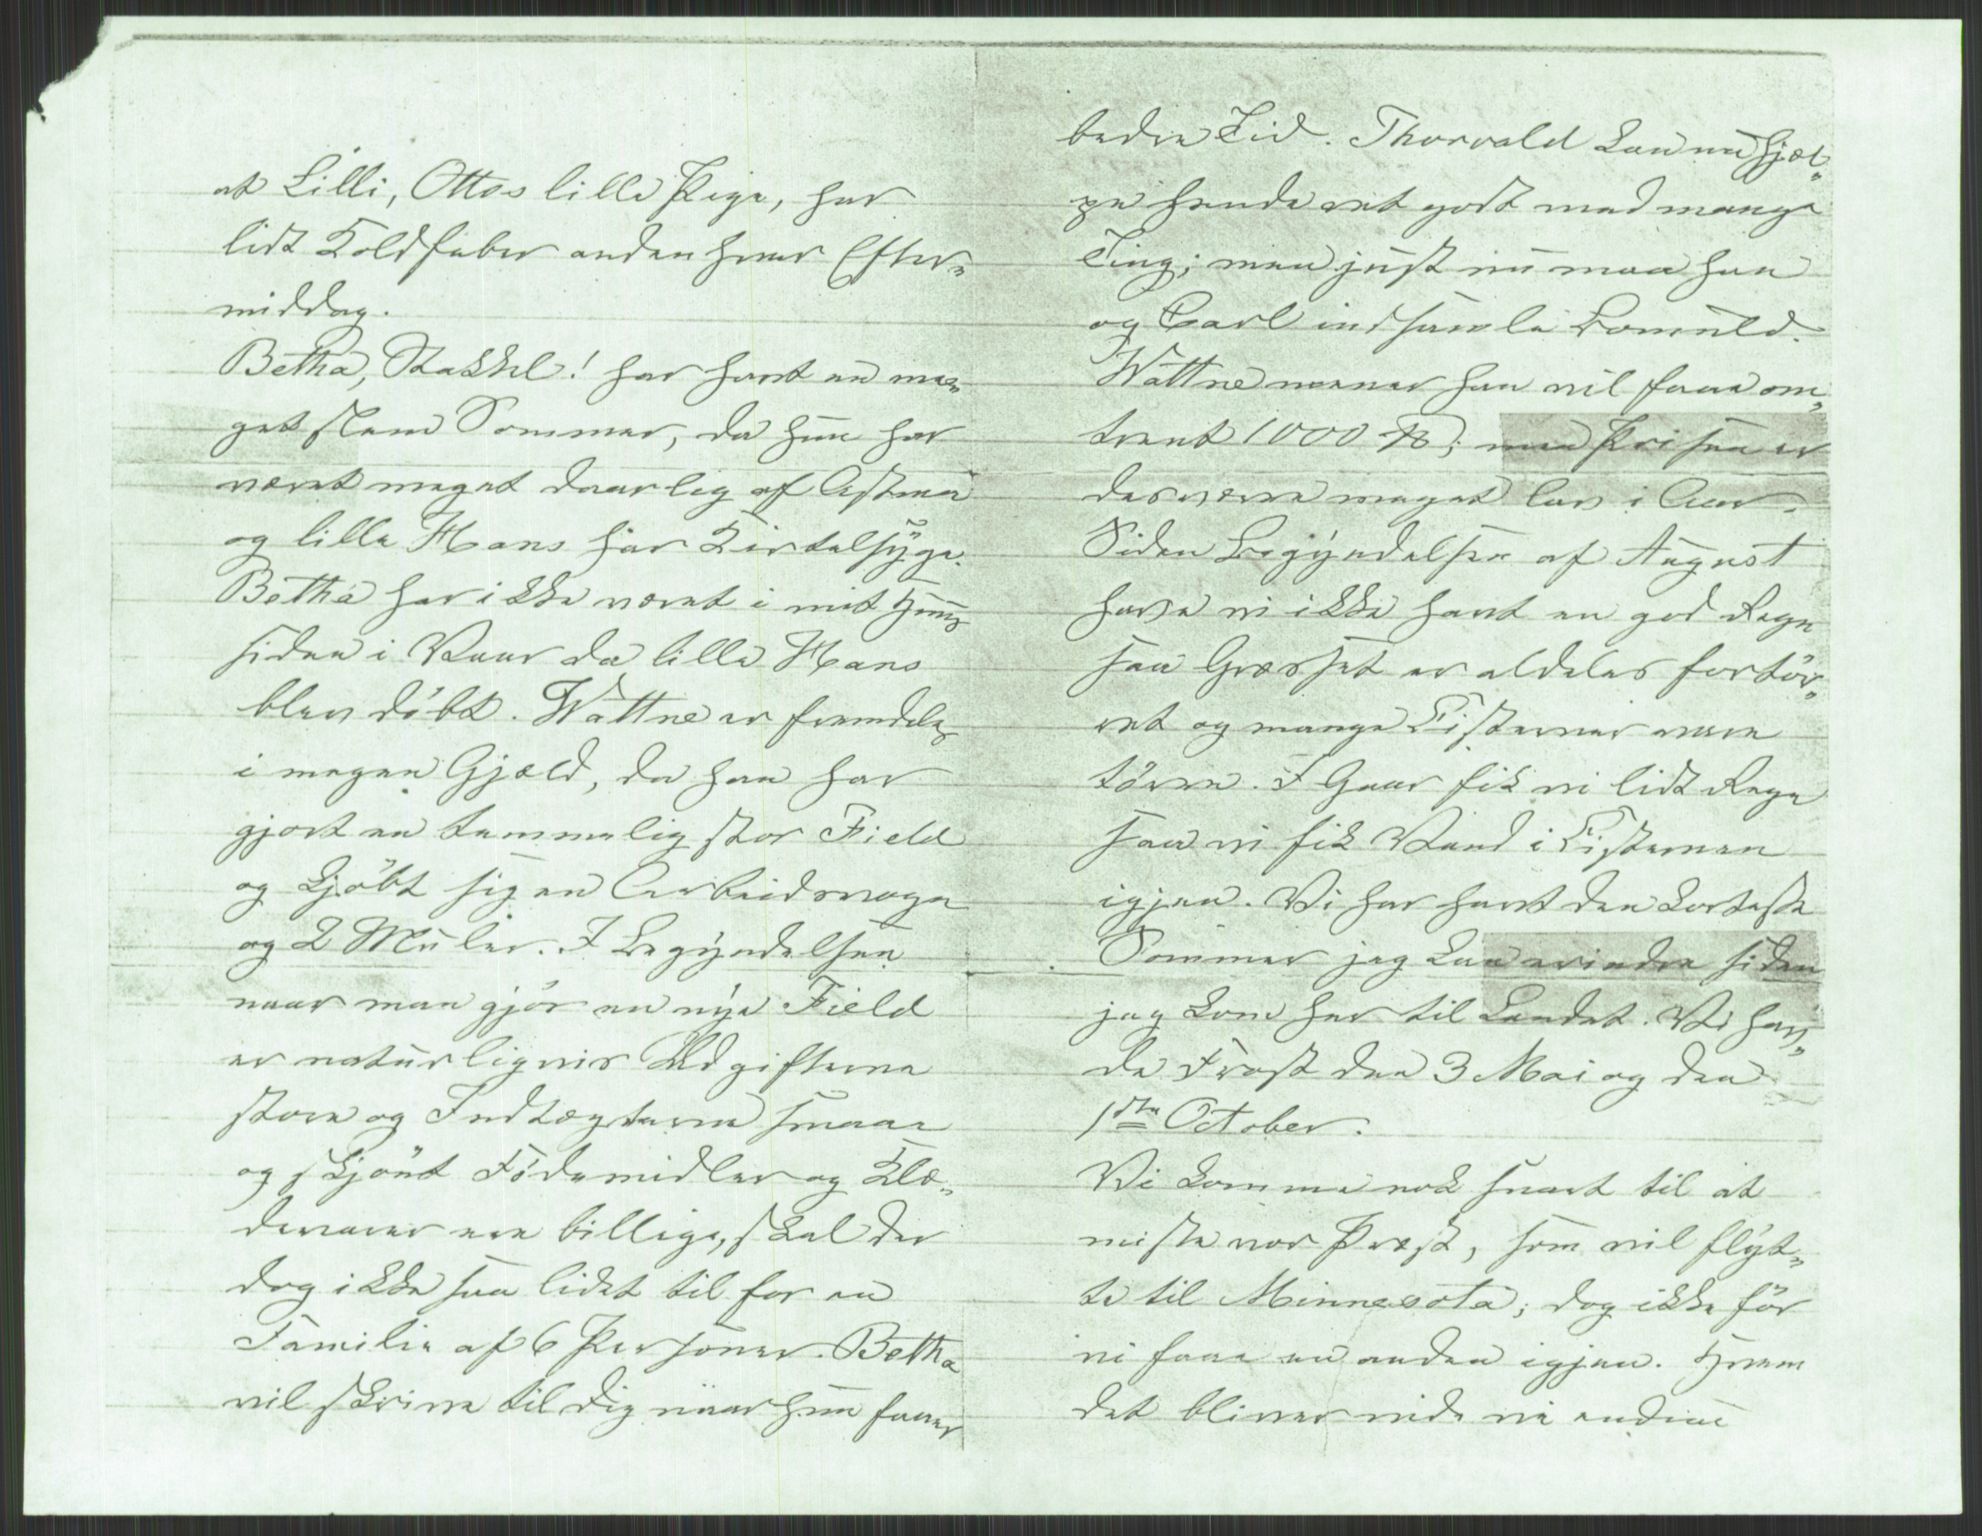 at Lilli, Ottos lille Pige, har
lidt Koldfeber anden hver Efter-
middag.
Betha, Stakkel! har havt en me-
get slem Sommer, da hun har
været meget daarlig af Astma
og lille Hans har Kirtelsyge.
Betha har ikke været i mit Huus
siden i Vaar da lille Hans
blev döbt. Wattne er fremdeles
i megen Gjæld, da han har
gjort en temmelig stor Field
og kjöbt sig en Arbeidsvogn
og 2 Muler. I Begyndelsen
naar man gjör en nye Field
er naturligvis Udgifterne
store og Indtægterne smaae
og skjönt Födemidler og Klæ-
devarer ere billige, skal der
dog ikke saa lidet til for en
Familie af 6 Personer. Betha
vil skrive til dig naar hun faaer
bedre Tid. Thorvald kan nu hjæl-
pe hende ret godt med mange
Ting; men just nu maa han
og Carl indsamle Bomuld.
Wattne mener han vil faae om-
trent 1000 ℔; men Prisen er
desværre meget lav i Aar.
Siden Begyndelsen af August
have vi ikke havt en god Regn
saa Græsset er aldeles fortör-
ret og mange Cisterner vare
törre. I Gaar fik vi lidt Regn
saa vi fik Vand i Cisternen
igjen. Vi har havt den korteste
Sommer jeg kan erindre siden
jeg kom her til Landet. Vi hav-
de Frost den 3 Mai og den
1ste October.
Vi komme nok snart til at
miste vor Præst, som vil flyt-
te til Minnesota; dog ikke för
vi faae en anden igjen. Hvem
det bliver vide vi endnu